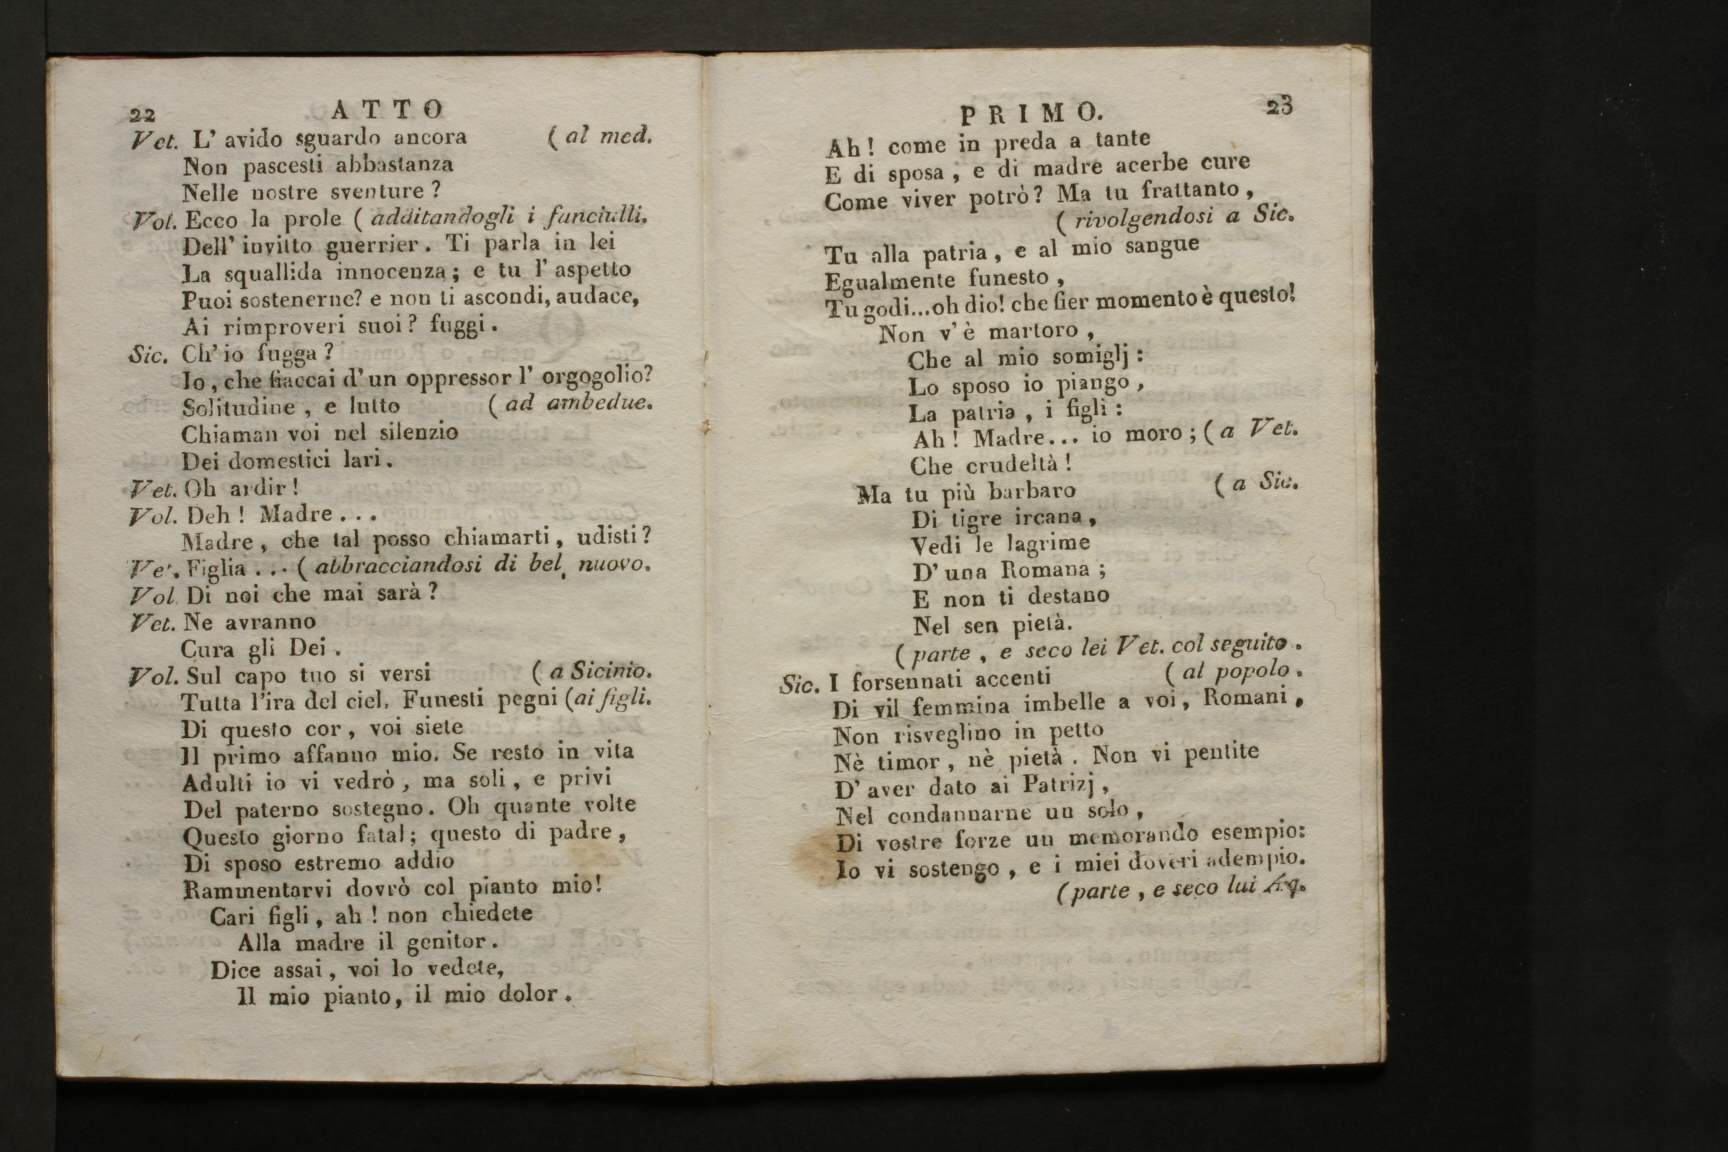 22 ATTO
Vet. L' avido sguardo ancora ( al med.
Non pascesti abbastanza
Nelle nostre sventure ?
Vol. Ecco la prole ( additandogli i fanciulli.
Dell' invitto guerrier . Ti parla in lei
La squallida innocenza ; e tu l' aspetto
Puoi sostenerne? e non ti ascondi, audace,
Ai rimproveri suoi ? fuggi .
Sic. Ch' io fugga ?
Io , che fiaccai d' un oppressor l' orgogolio?
Solitudine , e lutto ( ad ambedue.
Chiaman voi nel silenzio
Dei domestici lari .
Vet. Oh ardir !
Vol. Deh ! Madre . . .
Madre , che tal posso chiamarti , udisti ?
Vet. Figlia . . . ( abbracciandosi di bel nuovo.
Vol Di noi che mai sarà ?
Vet. Ne avranno
Cura gli Dei .
Vol. Sul capo tuo si versi ( a Sicinio.
Tutta l'ira del ciel. Funesti pegni (ai figli.
Di questo cor , voi siete
Il primo affanno mio. Se resto in vita
Adulti io vi vedrò , ma soli , e privi
Del paterno sostegno . Oh quante volte
Questo giorno fatal ; questo di padre ,
Di sposo estremo addio
Rammentarvi dovrò col pianto mio!
Cari figli , ah ! non chiedete
Alla madre il genitor .
Dice assai , voi lo vedete,
Il mio pianto, il mio dolor .
PRIMO. 23
Ah ! come in preda a tante
E di sposa , e di madre acerbe cure
Come viver potrò? Ma tu frattanto ,
( rivolgendosi a Sic.
Tu alla patria , e al mio sangue
Egualmente funesto ,
Tu godi...oh dio! che fier momento è questo!
Non v' è martoro ,
Che al mio somiglj :
Lo sposo io piango ,
La patria , i figli :
Ah ! Madre... io moro ; ( a Vet.
Che crudeltà !
Ma tu più barbaro ( a Sic.
Di tigre ircana ,
Vedi le lagrime
D' una Romana ;
E non ti destano
Nel sen pietà.
( parte , e seco lei Vet. col seguito .
Sic. I forsennati accenti ( al popolo .
Di vil femmina imbelle a voi , Romani ,
Non risveglino in petto
Nè timor , nè pietà . Non vi pentite
D' aver dato ai Patrizj ,
Nel condannarne un solo ,
Di vostre forze un memorando esempio:
Io vi sostengo , e i miei doveri adempio.
( parte , e seco lui Aq.